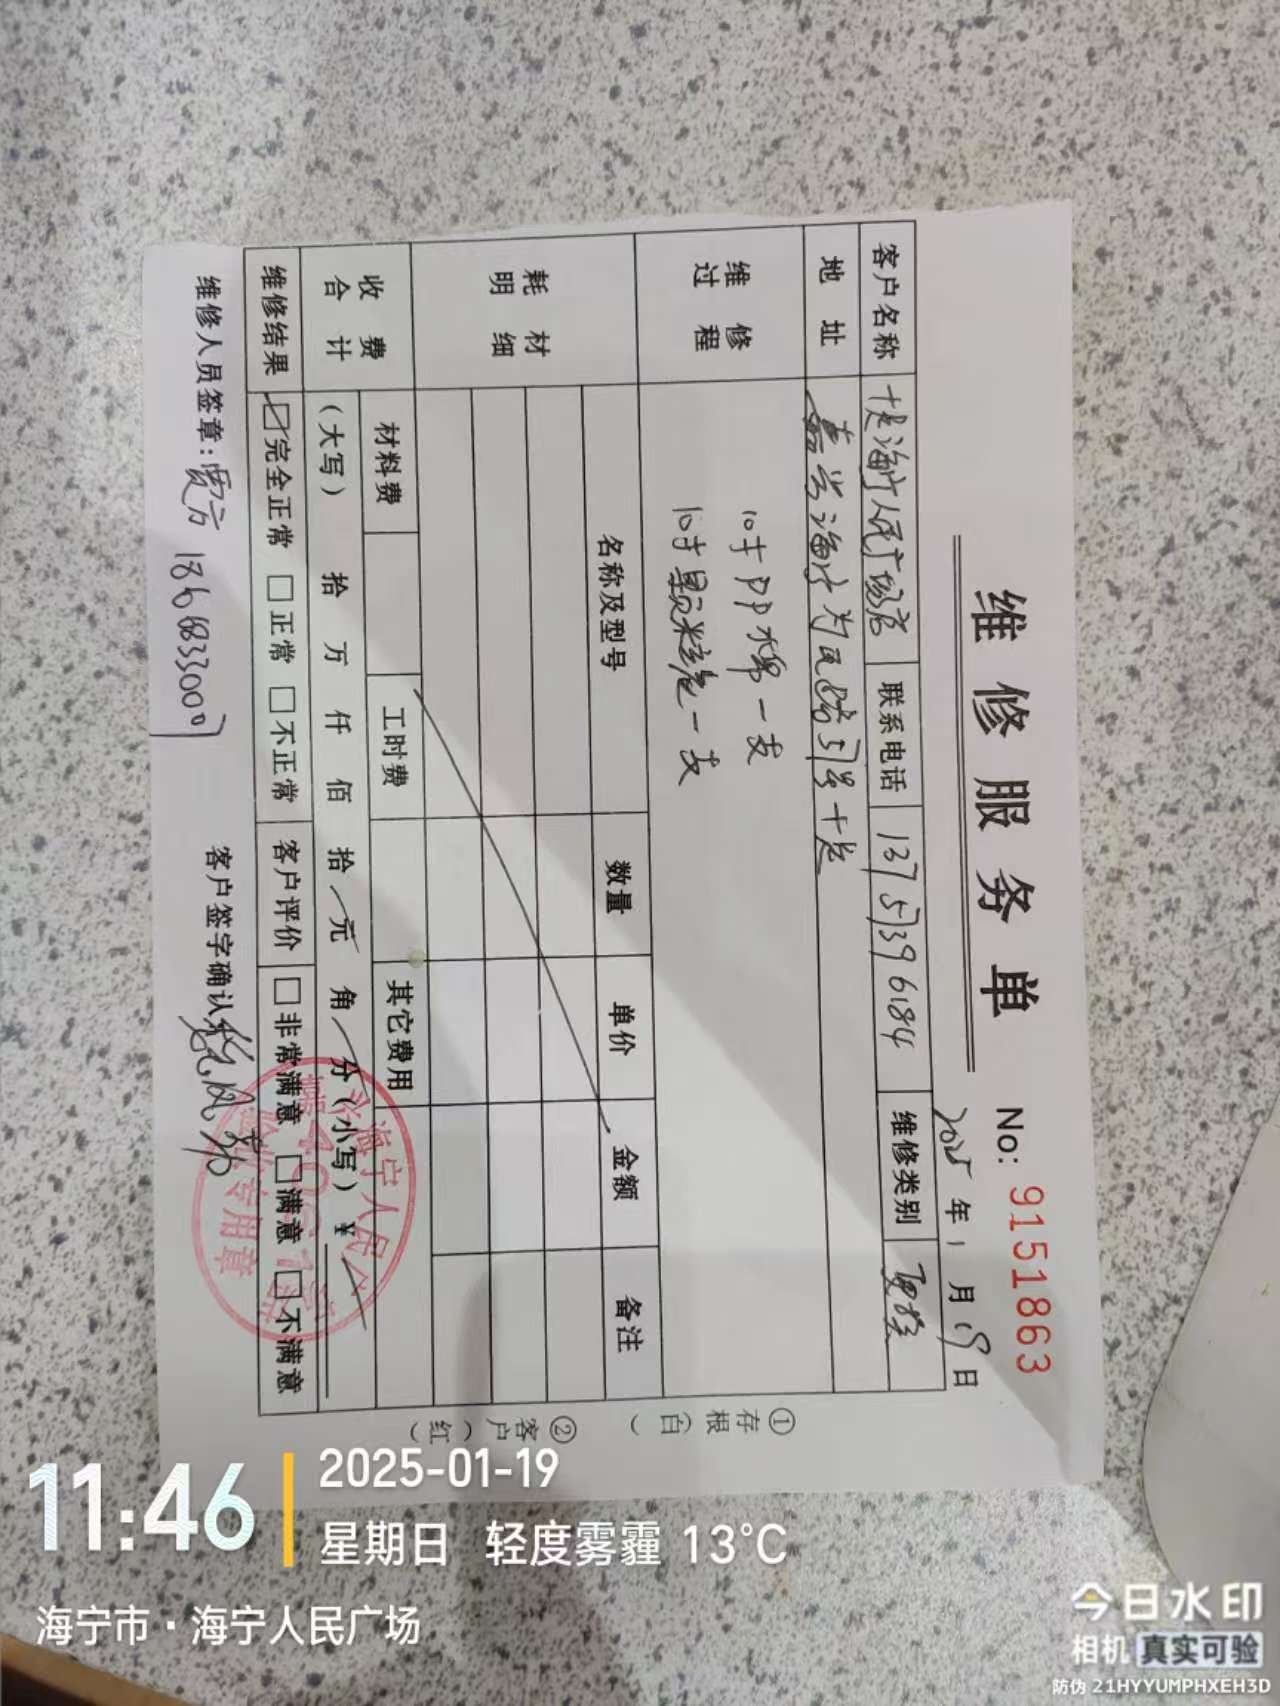 维修服务单
No: 9151863
2025年1月19日
客户名称 海宁人民广场店 联系电话 13757396184 维修类别 更换
地址 嘉兴海宁为民路51号
维修过程
10寸PP棉一支
10寸颗粒炭一支
耗材明细
名称及型号 数量 单价 金额 备注
收费合计
材料费 工时费 其它费用
(大写) 拾 万 仟 佰 拾 元 角 分 (小写) ¥
维修结果 ☑完全正常 □正常 □不正常 客户评价 □非常满意 □满意 □不满意
维修人员签章: 贾方 18668833007
客户签字确认
①存根(白) ②客户(红)
海宁人民
验收专用章
11:46
2025-01-19
星期日 轻度雾霾 13℃
海宁市·海宁人民广场
今日水印
相机 真实可验
防伪 21HYYUMPHXEH3D